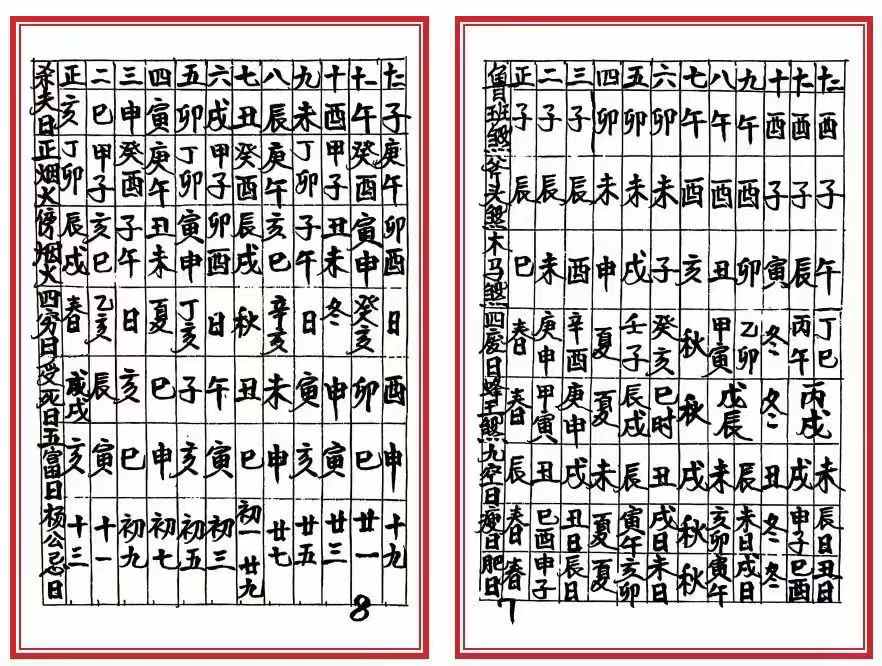 正 二 三 四 五 六 七 八 九 十 十一 十二
杀夫日 亥 巳 申 寅 卯 戌 丑 辰 未 酉 午 子
正烟火 丁卯 甲子 癸酉 庚午 丁卯 甲子 癸酉 庚午 丁卯 甲子 癸酉 庚午
停烟火 辰戌 亥巳 子午 丑未 寅申 卯酉 辰戌 亥巳 子午 丑未 寅申 卯酉
四穷日 春 乙亥 日 夏 丁亥 日 秋 辛亥 日 冬 癸亥 日
受死日 戌 辰 亥 巳 子 午 丑 未 寅 申 卯 酉
五富日 亥 寅 巳 申 亥 寅 巳 申 亥 寅 巳 申
杨公忌日 十三 十一 初九 初七 初五 初三 初一廿九 廿七 廿五 廿三 廿一 十九
8
正 二 三 四 五 六 七 八 九 十 十一 十二
鲁班煞 子 子 子 卯 卯 卯 午 午 午 酉 酉 酉
斧头煞 辰 辰 辰 未 未 未 酉 酉 酉 子 子 子
木马煞 巳 未 酉 申 戌 子 亥 丑 卯 寅 辰 午
四废日 春 庚申 辛酉 夏 壬子 癸亥 秋 甲寅 乙卯 冬 丙午 丁巳
蜂王煞 春 甲寅 庚申 夏 辰戌 巳时 秋 戊辰 冬 丙戌
九空日 辰 丑 戌 未 辰 丑 戌 未 辰 丑 戌 未
瘦日 春 巳酉 丑日 夏 寅午 戌日 秋 亥卯 未日 冬 申子 辰日
肥日 春 申子 辰日 夏 亥卯 未日 秋 寅午 戌日 冬 巳酉 丑日
7